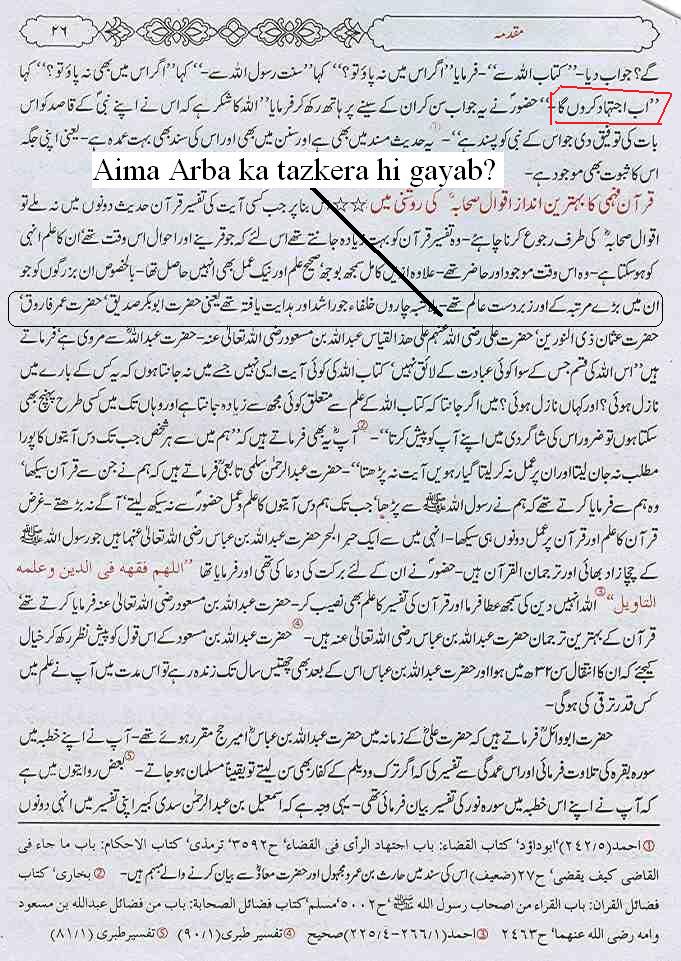 ۲۶ مقدمہ
گے؟ جواب دیا-”کتاب اللہ سے“-فرمایا ”اگر اس میں نہ پاؤ تو؟“ کہا ”سنت رسول اللہ سے-“ کہا ”اگر اس میں بھی نہ پاؤ تو؟“ کہا
”اب اجتہاد کروں گا-“ حضورؐ نے یہ جواب سن کر ان کے سینے پر ہاتھ رکھ کر فرمایا ”اللہ کا شکر ہے کہ اس نے اپنے نبی کے قاصد کو اس
بات کی توفیق دی جو اس کے نبی کو پسند ہے“-① یہ حدیث مسند میں بھی ہے اور سنن میں بھی اور اس کی سند بھی بہت عمدہ ہے-یعنی اپنی جگہ
اس کا ثبوت بھی موجود ہے-
Aima Arba ka tazkera hi gayab?
قرآن فہمی کا بہترین انداز اقوال صحابہؓ کی روشنی میں ☆☆ بنا پر جب کسی آیت کی تفسیر قرآن حدیث دونوں میں نہ ملے تو
اقوال صحابہؓ کی طرف رجوع کرنا چاہئے-وہ تفسیر قرآن کو بہت زیادہ جانتے تھے اس لئے کہ جو قرینے اور احوال اس وقت تھے ان کا علم انہی
کو ہو سکتا ہے-وہ اس وقت موجود اور حاضر تھے-علاوہ ازیں کامل سمجھ بوجھ صحیح علم اور نیک عمل بھی انہیں حاصل تھا-بالخصوص ان بزرگوں کو جو
ان میں بڑے مرتبہ کے اور زبردست عالم تھے- چاروں خلفاء جو راشد اور ہدایت یافتہ تھے یعنی حضرت ابوبکر صدیقؓ حضرت عمر فاروقؓ
حضرت عثمان ذی النورینؓ حضرت علی رضی اللہ عنہم علی ھذا القیاس عبداللہ بن مسعود رضی اللہ تعالیٰ عنہ-حضرت عبداللہ سے مروی ہے فرماتے
ہیں ”اس اللہ کی قسم جس کے سوا کوئی عبادت کے لائق نہیں‘ کتاب اللہ کی کوئی آیت ایسی نہیں جسے میں نہ جانتا ہوں کہ یہ کس کے بارے میں
نازل ہوئی؟ اور کہاں نازل ہوئی؟ میں اگر جانتا کہ کتاب اللہ کے علم سے متعلق کوئی مجھ سے زیادہ جانتا ہے اور وہاں تک میں کسی طرح پہنچ بھی
سکتا ہوں تو ضرور اس کی شاگردی میں اپنے آپ کو پیش کرتا“-② آپؓ یہ بھی فرماتے ہیں کہ ”ہم میں سے ہر شخص جب تک دس آیتوں کا پورا
مطلب نہ جان لیتا اور ان پر عمل نہ کر لیتا گیارھویں آیت نہ پڑھتا“-حضرت عبدالرحمٰن سلمی تابعیؒ فرماتے ہیں کہ ہم نے جن سے قرآن سیکھا‘
وہ ہم سے فرمایا کرتے تھے کہ ہم نے رسول اللہ ﷺ سے پڑھا‘ جب تک ہم دس آیتوں کا علم و عمل حضورؐ سے نہ سیکھ لیتے‘ آگے نہ بڑھتے-غرض
قرآن کا علم اور قرآن پر عمل دونوں ہی سیکھا-انہی میں سے ایک حبر البحر حضرت عبداللہ بن عباس رضی اللہ تعالیٰ عنہما ہیں جو رسول اللہ ﷺ
کے چچا زاد بھائی اور ترجمان القرآن ہیں-حضورؐ نے ان کے لئے برکت کی دعا کی تھی اور فرمایا تھا ”اللهم فقهه فی الدین وعلمه
التاویل“③ اللہ انہیں دین کی سمجھ عطا فرما اور قرآن کی تفسیر کا علم بھی نصیب کر-حضرت عبداللہ بن مسعود رضی اللہ تعالیٰ عنہ فرمایا کرتے تھے‘
قرآن کے بہترین ترجمان حضرت عبداللہ بن عباس رضی اللہ تعالیٰ عنہ ہیں-④ حضرت عبداللہ بن مسعود کے اس قول کو پیش نظر رکھ کر خیال
کیجئے کہ ان کا انتقال سن ۳۲ھ میں ہوا اور حضرت عبداللہ بن عباس اس کے بعد بھی چھتیس سال تک زندہ رہے تو اس مدت میں آپ نے علم میں
کس قدر ترقی کی ہوگی-
حضرت ابو وائلؒ فرماتے ہیں کہ حضرت علیؓ کے زمانہ میں حضرت عبداللہ بن عباسؓ امیر حج مقرر ہوئے تھے-آپ نے اپنے خطبہ میں
سورہ بقرہ کی تلاوت فرمائی اور اس عمدگی سے تفسیر کی کہ اگر ترک و دیلم کے کفار بھی سن لیتے تو یقیناً مسلمان ہو جاتے-⑤ بعض روایتوں میں ہے
کہ آپ نے اپنے اس خطبہ میں سورہ نور کی تفسیر بیان فرمائی تھی-یہی وجہ ہے کہ اسمٰعیل بن عبدالرحمٰن سدی کبیر اپنی تفسیر میں انہی دونوں
① احمد (۲۴۲/۵)‘ ابوداؤد‘ کتاب القضاء: باب اجتهاد الرأی فی القضاء‘ ح۳۵۹۲‘ ترمذی‘ کتاب الاحکام: باب ما جاء فی
القاضی کیف یقضی‘ ح۲۷ (ضعیف) اس کی سند میں حارث بن عمرو مجہول اور حضرت معاذؓ سے بیان کرنے والے مبہم ہیں- ② بخاری‘ کتاب
فضائل القران: باب القراء من اصحاب رسول الله ﷺ‘ ح۵۰۰۲‘ مسلم‘ کتاب فضائل الصحابة: باب من فضائل عبدالله بن مسعود
وامه رضی الله عنهما‘ ح۲۴۶۳ ③ احمد (۲۶۶/۱-۲۲۵/۴) صحیح ④ تفسیر طبری (۹۰/۱) ⑤ تفسیر طبری (۸۱/۱)